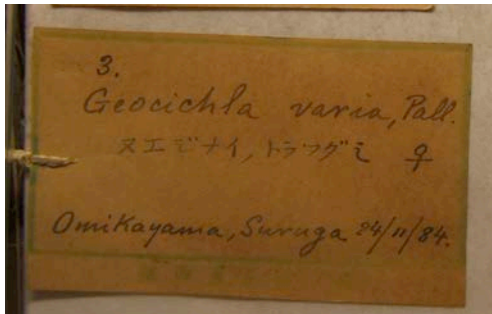 3.
Geocichla varia, Pall.
ヌエジナイ, トラツグミ ♀
Omikayama, Suruga 24/11/84.